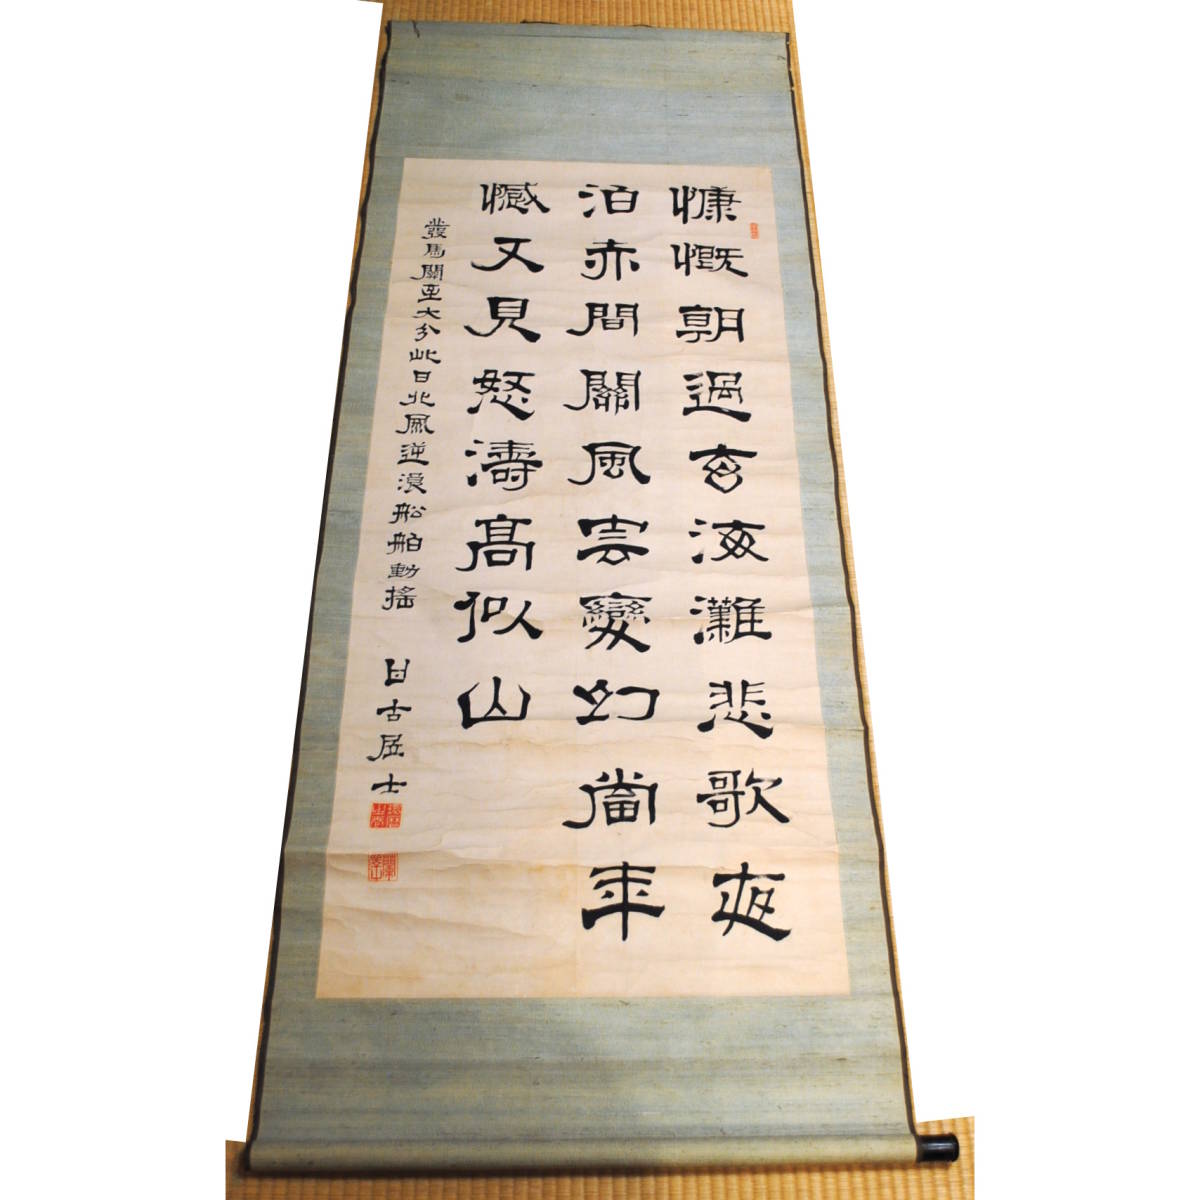 慷慨朝過玄海灘悲歌夜
泊赤間關風雲變幻當年
憾又見怒濤高似山
發馬關至大分此日北風逆浪船舶動搖
甘古居士